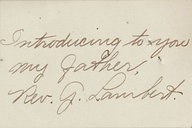 Introducing to you
my father,
Rev. J. Lambert.